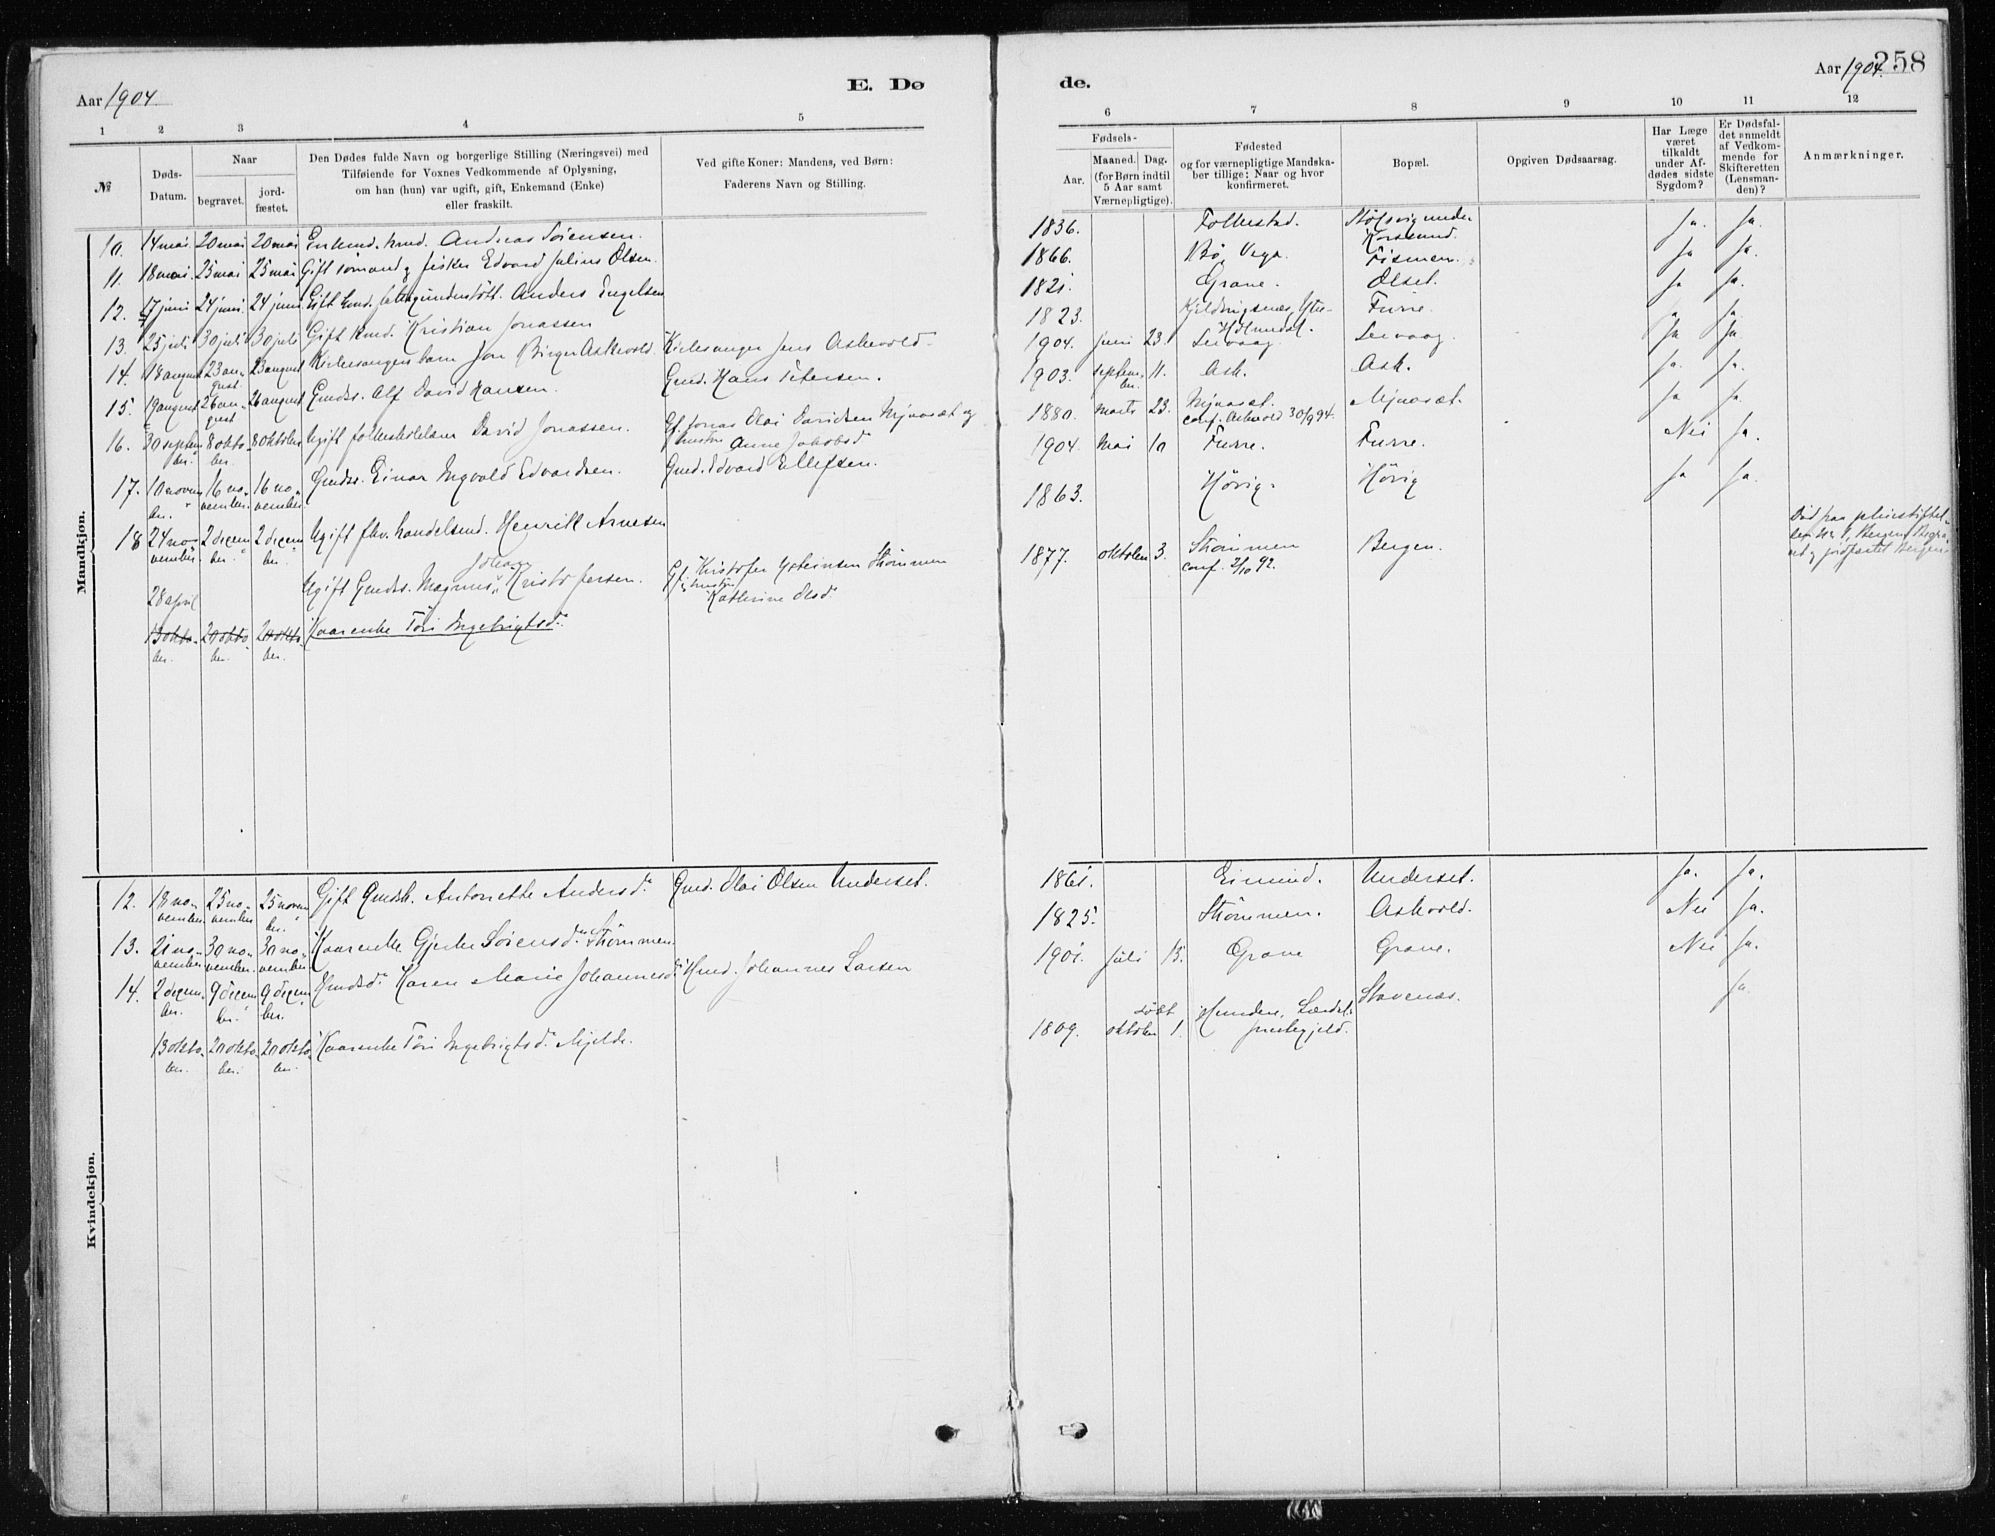 Aar 1904.
E. Dø
de.
Aar 1904.
258
1 2 3 4 5 6 7 8 9 10 11 12
№
Døds-Datum.
Naar
begravet.
jord-fæstet.
Den Dødes fulde Navn og borgerlige Stilling (Næringsvei) med
Tilføiende for Voxnes Vedkommende af Oplysning,
om han (hun) var ugift, gift, Enkemand (Enke)
eller fraskilt.
Ved gifte Koner: Mandens, ved Børn:
Faderens Navn og Stilling.
Fødsels-
Aar.
Maaned. Dag.
(for Børn indtil
5 Aar samt
Værnepligtige).
Fødested
og for værnepligtige Mandska-
ber tillige: Naar og hvor
konfirmeret.
Bopæl.
Opgiven Dødsaarsag.
Har Læge
været
tilkaldt
under Af-
dødes sidste
Sygdom?
Er Dødsfal-
det anmeldt
af Vedkom-
mende for
Skifteretten
(Lensman-
den)?
Anmærkninger.
Mandkjøn.
10. 14 mai 20 mai 20 mai Enkemd. Andreas Sørensen. 1836. Folkestad. under Korssund. Ja. Ja.
11. 18 mai 25 mai 25 mai Gift sømand og fisker Edvard Julius Olsen. 1866. Bø, Vega. Ja Ja.
12. 17 juni 24 juni 24 juni Gift Anders Engelsen 1821. Grane. Olset. Ja Ja.
13. 25 juli 30 juli 30 juli Gift Kristian Jonassen 1823. Furre. Ja Ja.
14. 18 august 23 august 23 august Kirkesangers barn Jon Birger Askvold. Kirkesanger Jens Askevold. 1904. juni 23. Leivaag. Leivaag. Ja Ja.
15. 19 august 26 august 26 august Gmdss. Alf David Hansen. Gmd. Hans Petersen. 1903. september 11. Ask. Ask. Ja. Ja.
16. 30 september 8 oktober 8 oktober Ugift folkeskolelærer David Jonassen. Gf. Jonas Olai Davidsen Mjvasæt og hustru Anne Jakobsd. 1880. Marts 23. conf. Askvold 30/9 94. Ja Ja.
17. 10 november 16 november 16 november Gmdss. Einar Ingvald Edvardsen. Gmd. Edvard Ellefsen. 1904. Mai 10 Furre. Furre. Nei Ja.
18 24 november 2 december 2 december Ugift fhv. handelsmd. Henrik Arnesen 1863. Høvig. Høvig Ja Ja.
28 april Ugift Gmdss. Magnus Johan Kristofersen. Gf. Kristofer Østeinsen Strømmen hustru Kathrine Olsd. 1877. oktober 3. Strømmen conf. 2/10 92. Bergen. Død paa pleiestiftelsen No 1, Bergen. Begravd og jordfæstet Bergen.
13 oktober 20 oktober 20 oktober Kaarenke Tøri Ingebrigtsd.
Kvindekjøn.
12. 18 november 25 november 25 november Gift Gmdsk. Antonette Andersd. Gmd. Olai Olsen Underset. 1861. Eimind. Underset. Ja. Ja.
13. 21 november 30 november 30 november Kaarenke Gjerke Sørensd. Strømmen. 1825. Strømmen. Askvold. Nei Ja.
14. 2 december 9 december 9 december Karen Marie Johannesd. Johannes Larsen 1901. Juli 15. Grane Grane. Nei Ja.
13 oktober 20 oktober 20 oktober Kaarenke Tøri Ingebrigtsd. Mjelde. 1809. døbt oktober 1. Lærdals prestegjeld. Stavenæs. Ja.